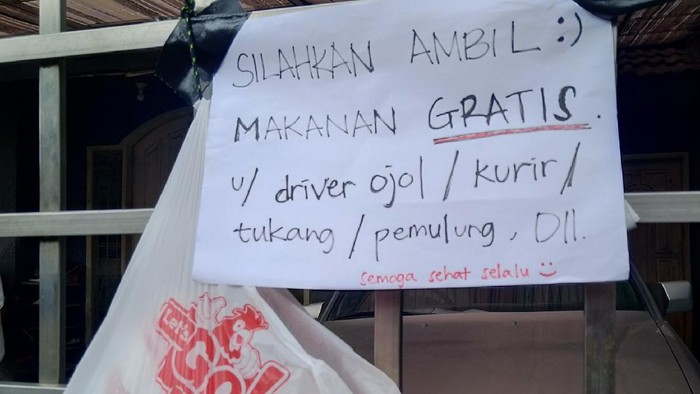 SILAHKAN AMBIL :)
MAKANAN GRATIS.
u/ driver ojol / kurir /
tukang / pemulung, Dll.
semoga sehat selalu :)
Let's
GO!